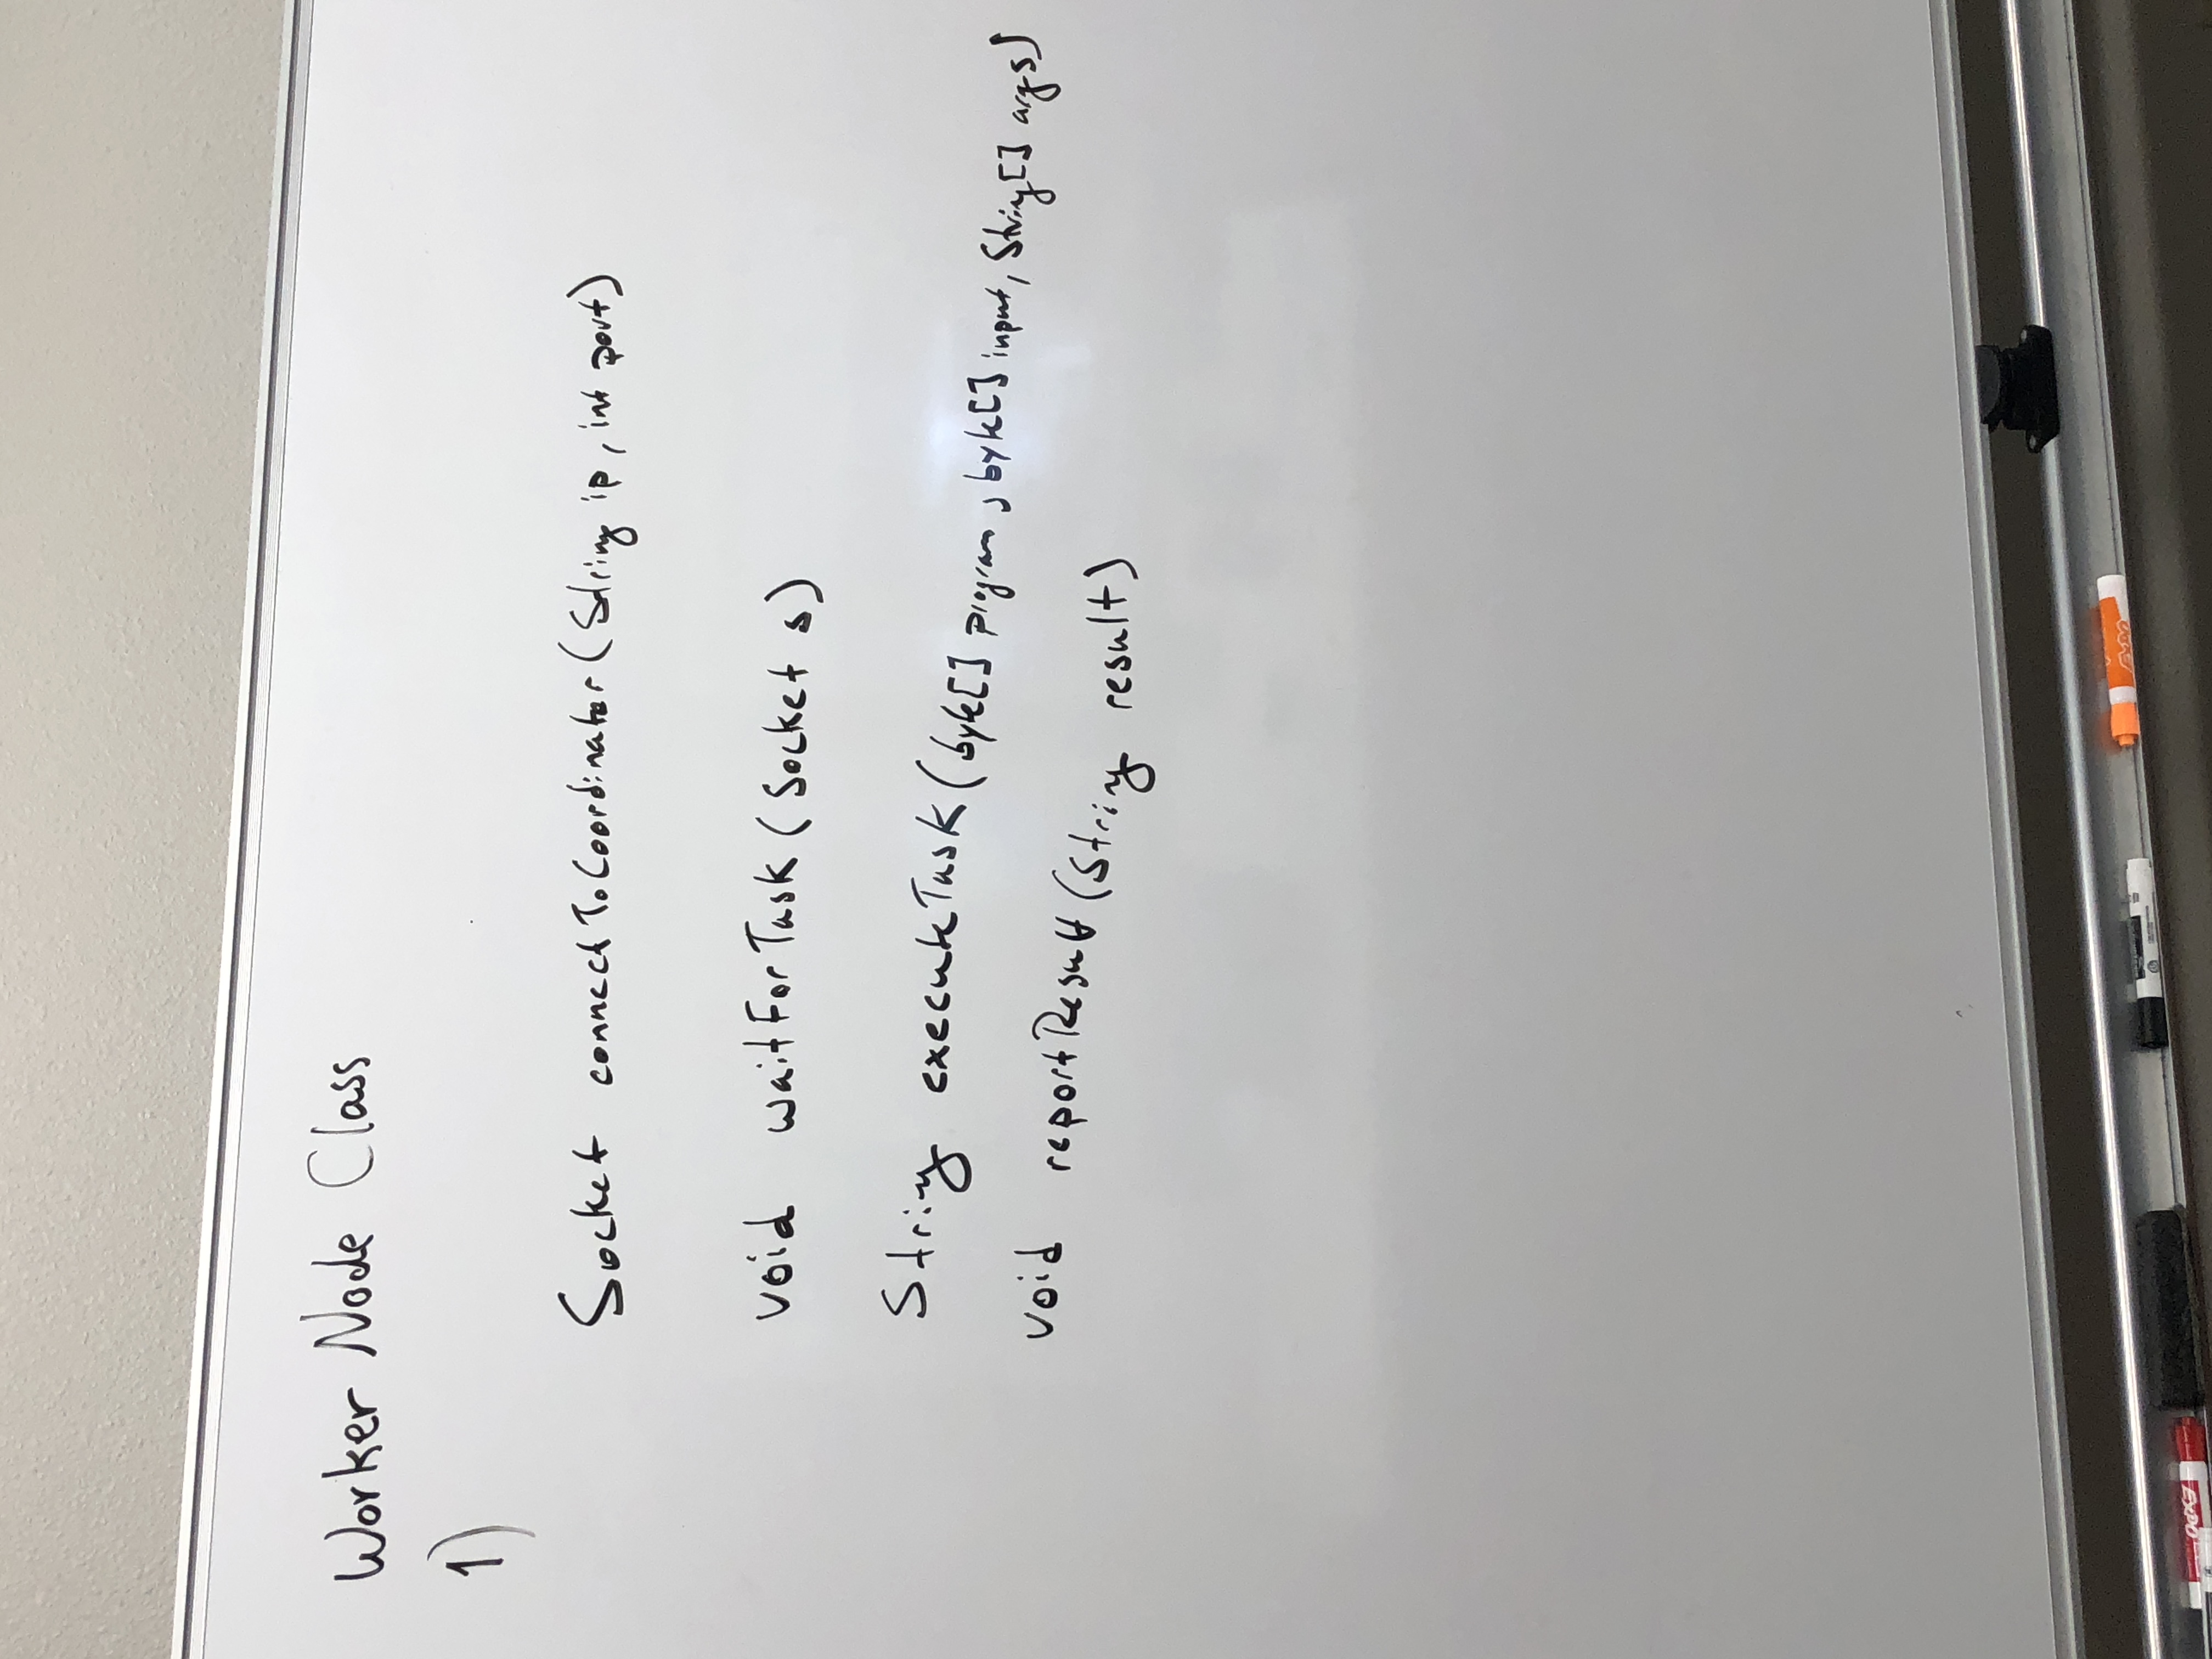 Worker Node Class
1)
Socket connectToCoordinator(String ip, int port)
void waitForTask(Socket s)
String executeTask(byte[] program, byte[] input, String[] args)
void reportResult(String result)
EXPO
EXPO